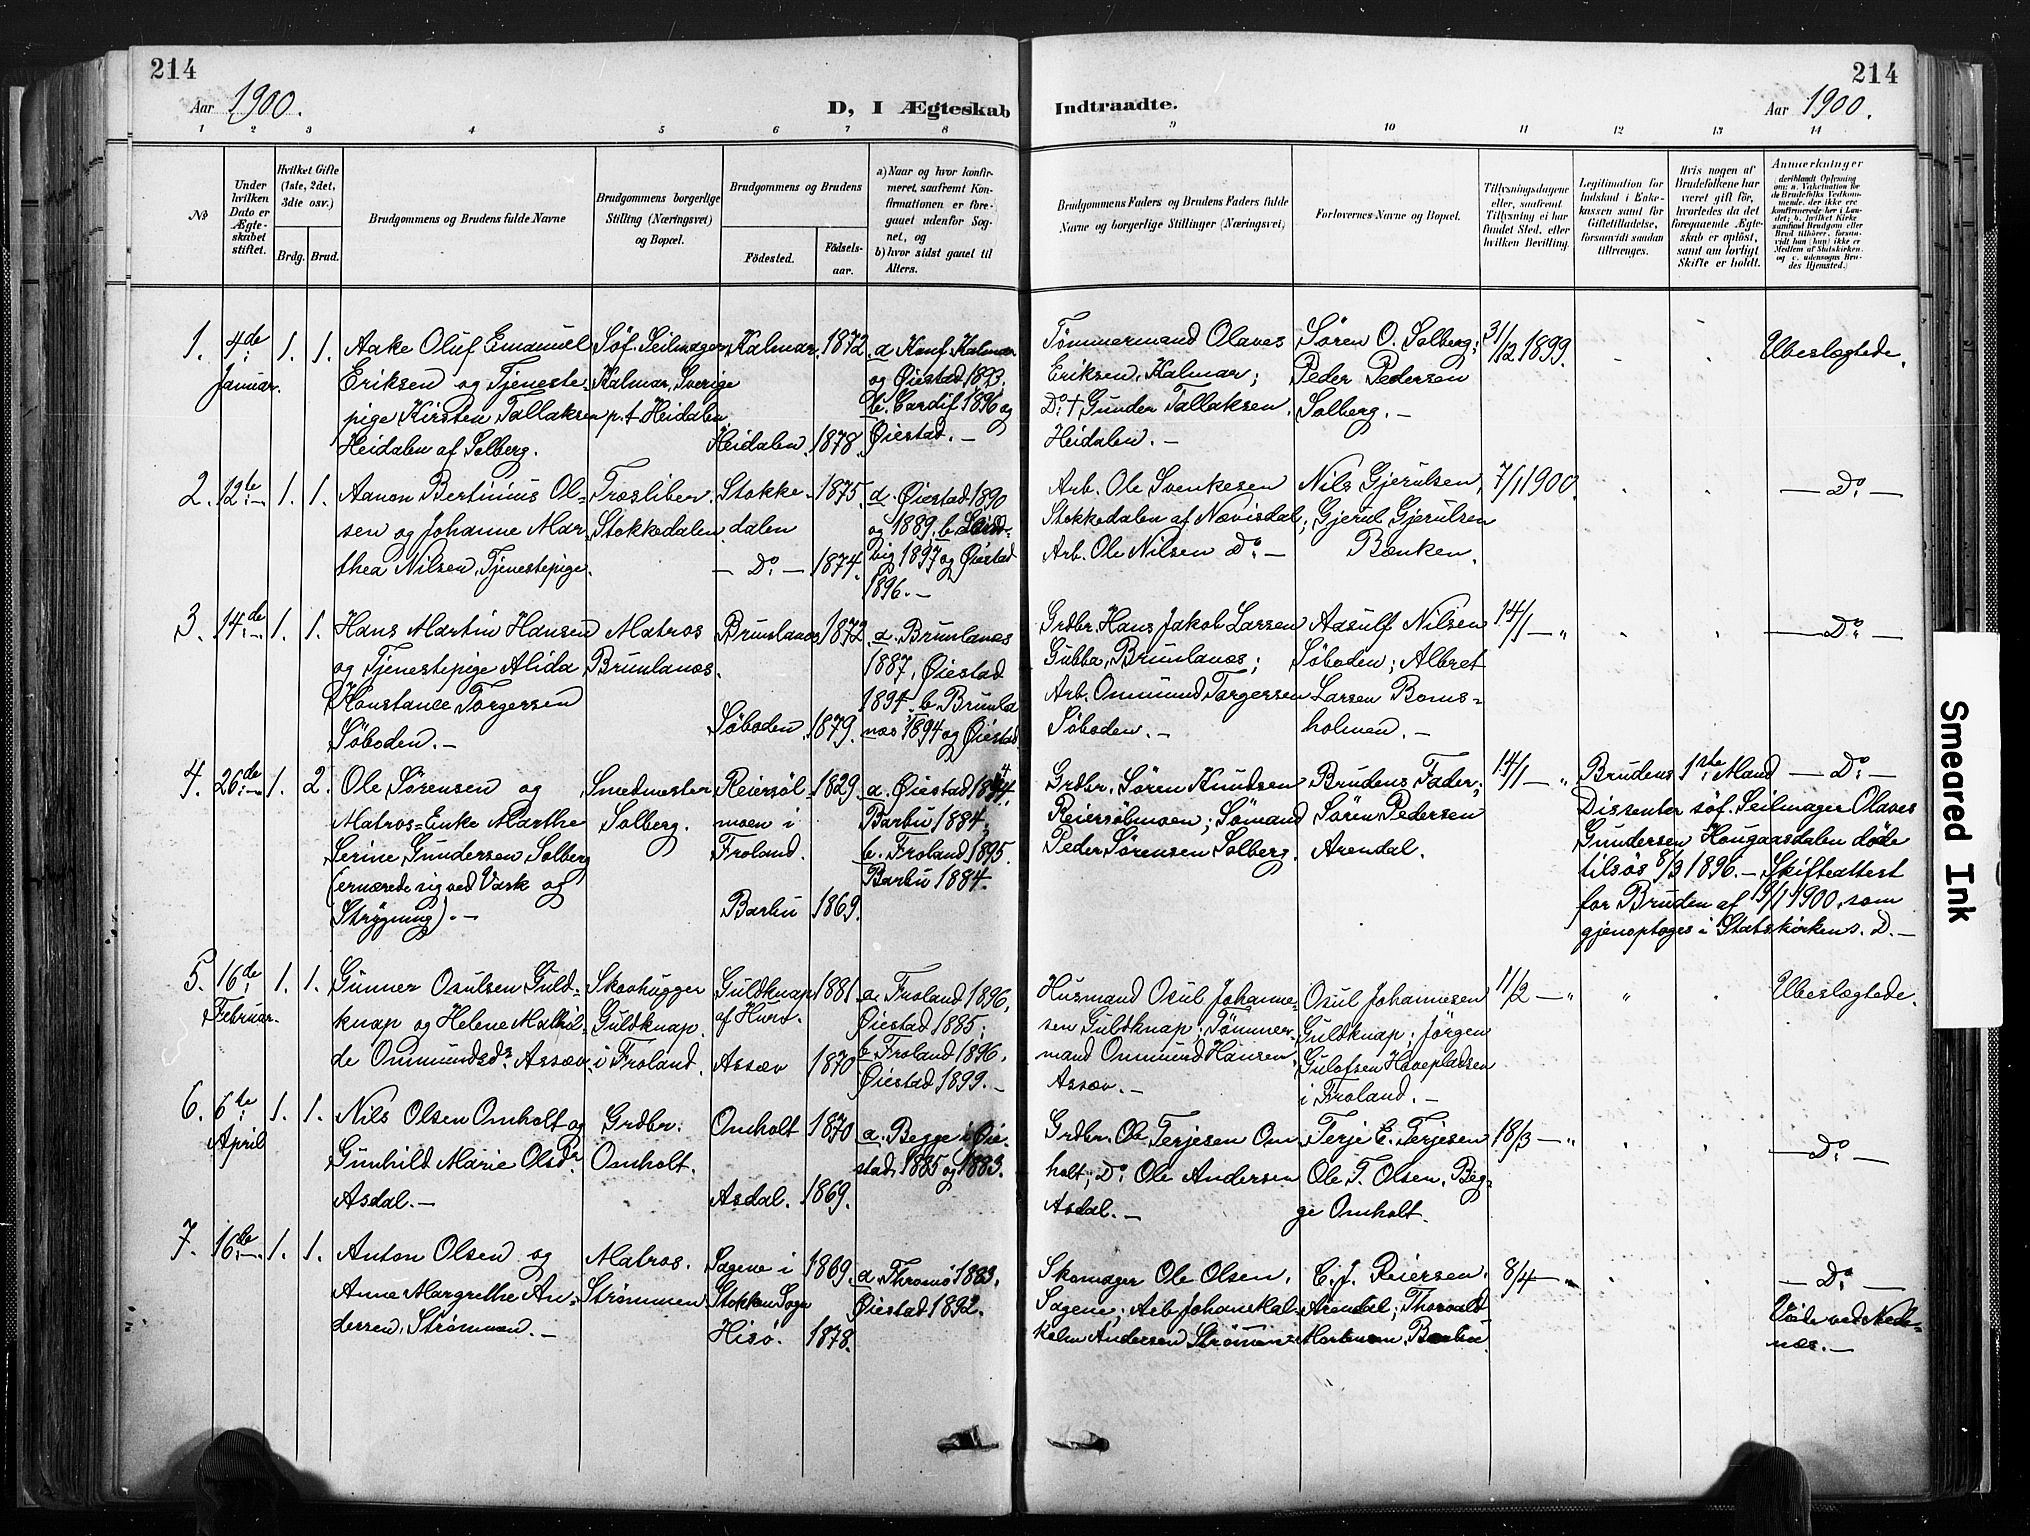 214
Aar 1900.
D, I Ægteskab
Indtraadte.
214
Aar 1900.
1 2 3 4 5 6 7 8 9 10 11 12 13 14
No
Under hvilken Dato er Ægteskabet stiftet.
Hvilket Gifte (1ste, 2det, 3die osv.)
Brdg. Brud.
Brudgommens og Brudens fulde Navne
Brudgommens borgerlige Stilling (Næringsvei) og Bopæl.
Brudgommens og Brudens
Födested.
Födselsaar.
a) Naar og hvor konfirmeret, saafremt Konfirmationen er foregaaet udenfor Sognet, og
b) hvor sidst gaaet til Alters.
Brudgommens Faders og Brudens Faders fulde Navne og borgerlige Stillinger (Næringsvei)
Forlovernes Navne og Bopæl.
Tillysningsdagene eller, saafremt Tillysning ei har fundet Sted, efter hvilken Bevilling.
Legitimation for Indskud i Enkekassen samt for Giftetilladelse, forsaavidt saadan tiltrænges.
Hvis nogen af Brudefolkene har været gift för, hvorledes da det foregaaende Ægteskab er oplöst, samt om lovligt Skifte er holdt.
Anmerkninger
deriblandt Oplysning om: a. Vakcination for de Brudefolks Vedkommende, der ikke ere konfirmerede her i Landet; b. hvilket Kirkesamfund Brudgom eller Brud tilhörer, forsaavidt han (hun) ikke er Medlem af Statskirken, og c. udensogns Brudes Hjemsted.)
1. 4de Januar. 1. 1.
Aake Oluf Emanuel
Eriksen og Tjeneste-
pige Kirsten Tallaksen
Heidalen af Solberg.
Söf. Seilmager
Kalmar, Sverige
p.t. Heidalen
Kalmar. 1872.
Heidalen. 1878.
a. Konf. Kalmar
og Øiestad 1893.
b. Cardif 1896 og
Øiestad. —
Tømmermand Olaves
Eriksen, Kalmar;
Do. † Gunder Tallaksen.
Heidalen. —
Søren O. Solberg;
Peder Pedersen
Solberg. —
31/12 1899.
Ubeslægtede.
2. 12te 1. 1.
Aanon Bertinius Ol-
sen og Johanne Mar-
thea Nilsen, Tjenestepige.
Træsliber.
Stokkedalen.
Stokke-
dalen
— Do. —
1875.
1874.
a. Øiestad 1890
og 1889. b.
1897 og Øiestad
1896. —
Arb. Ole Svenkesen
Stokkedalen af Nævisdal;
Arb. Ole Nilsen Do. —
Nils Gjerulsen,
Gjerul Gjerulsen
Bænken.
7/1 1900.
— Do. —
3. 14de 1. 1.
Hans Martin Hansen
og Tjenestepige Alida
Konstance Torgersen
Søboden. —
Matros
Brunlanæs.
Brunlanæs
Søboden.
1872.
1879.
a. Brunlanæs
1887, Øiestad
1894. b. Brunla
næs 1894 og Øiestad
Grdbr. Hans Jakob Larsen
Gubba, Brunlanæs;
Arb. Ommund Torgersen
Søboden. —
Aasulf Nilsen
Søboden; Albret
Larsen Boms-
holmen. —
14/1 — "
— Do. —
4. 26de 1. 2.
Ole Sørensen og
Matros-Enke Marthe
Serine Gundersen Solberg
(ernærede sig ved Vask og
Strygning). —
Smedmester
Solberg.
Reiersøl-
moen i
Froland.
Barbu
1829.
1869.
a. Øiestad 1844.
Barbu 1884;
b. Froland 1895.
Barbu 1884.
Grdbr. Søren Knudsen
Reiersølmoen; Sømand
Peder Sørensen Solberg.
Brudens Fader;
Søren Pedersen
Arendal.
14/1 — "
Brudens 1ste Mand — Do. —
Dissenter söf. Seilmager Olaves
Gundersen Hougaasdalen døde
tilsøs 8/9 1896. — Skifteattest
for Bruden af 19/1 1900, som
gjenoptoges i Statskirken s. D. —
5. 16de Februar. 1. 1.
Gunner Osulsen Guld-
knap og Helene Mathil-
de Ommundsdr. Assæv.
Skovhugger
Guldknap
i Froland.
Guldknap
Assæv
1881.
1870
a. Froland 1896,
Øiestad 1885;
b. Froland 1896.
Øiestad 1899. —
Husmand Osul Johanne-
sen Guldknap; Tømmer-
mand Ommund Hansen
Assæv. —
Osul Johannesen
Guldknap; Jørgen
Gulofsen Havepladsen
i Froland. —
11/2 — "
Ubeslægtede.
6. 6te April 1. 1.
Nils Olsen Omholt og
Gunhild Marie Olsdr.
Asdal. —
Grdbr.
Omholt.
Omholt
Asdal.
1870
1869.
a. Begge i Øie-
stad, 1885 og 1883.
Grdbr. Ole Terjesen Om
holt; Do. Ole Andersen
Asdal. —
Terje E. Terjesen
Ole T. Olsen, Beg-
ge Omholt.
18/3 — "
— Do. —
7. 16de 1. 1.
Anton Olsen og
Anne Margrethe An-
dersen, Strømmen. —
Matros.
Strømmen
Sagene i
Stokken Sogn
Hisø.
1869.
1878.
a. Thromø 1883.
Øiestad 1892.
Skomager Ole Olsen,
Sagene; Arb. Johan Kal-
Andersen Strømmen
C. J. Reiersen,
Arendal; Thorvald
Mortensen Barbu.
8/4 — "
— Do. —
Viede ved Nede-
næs. —
Smeared Ink